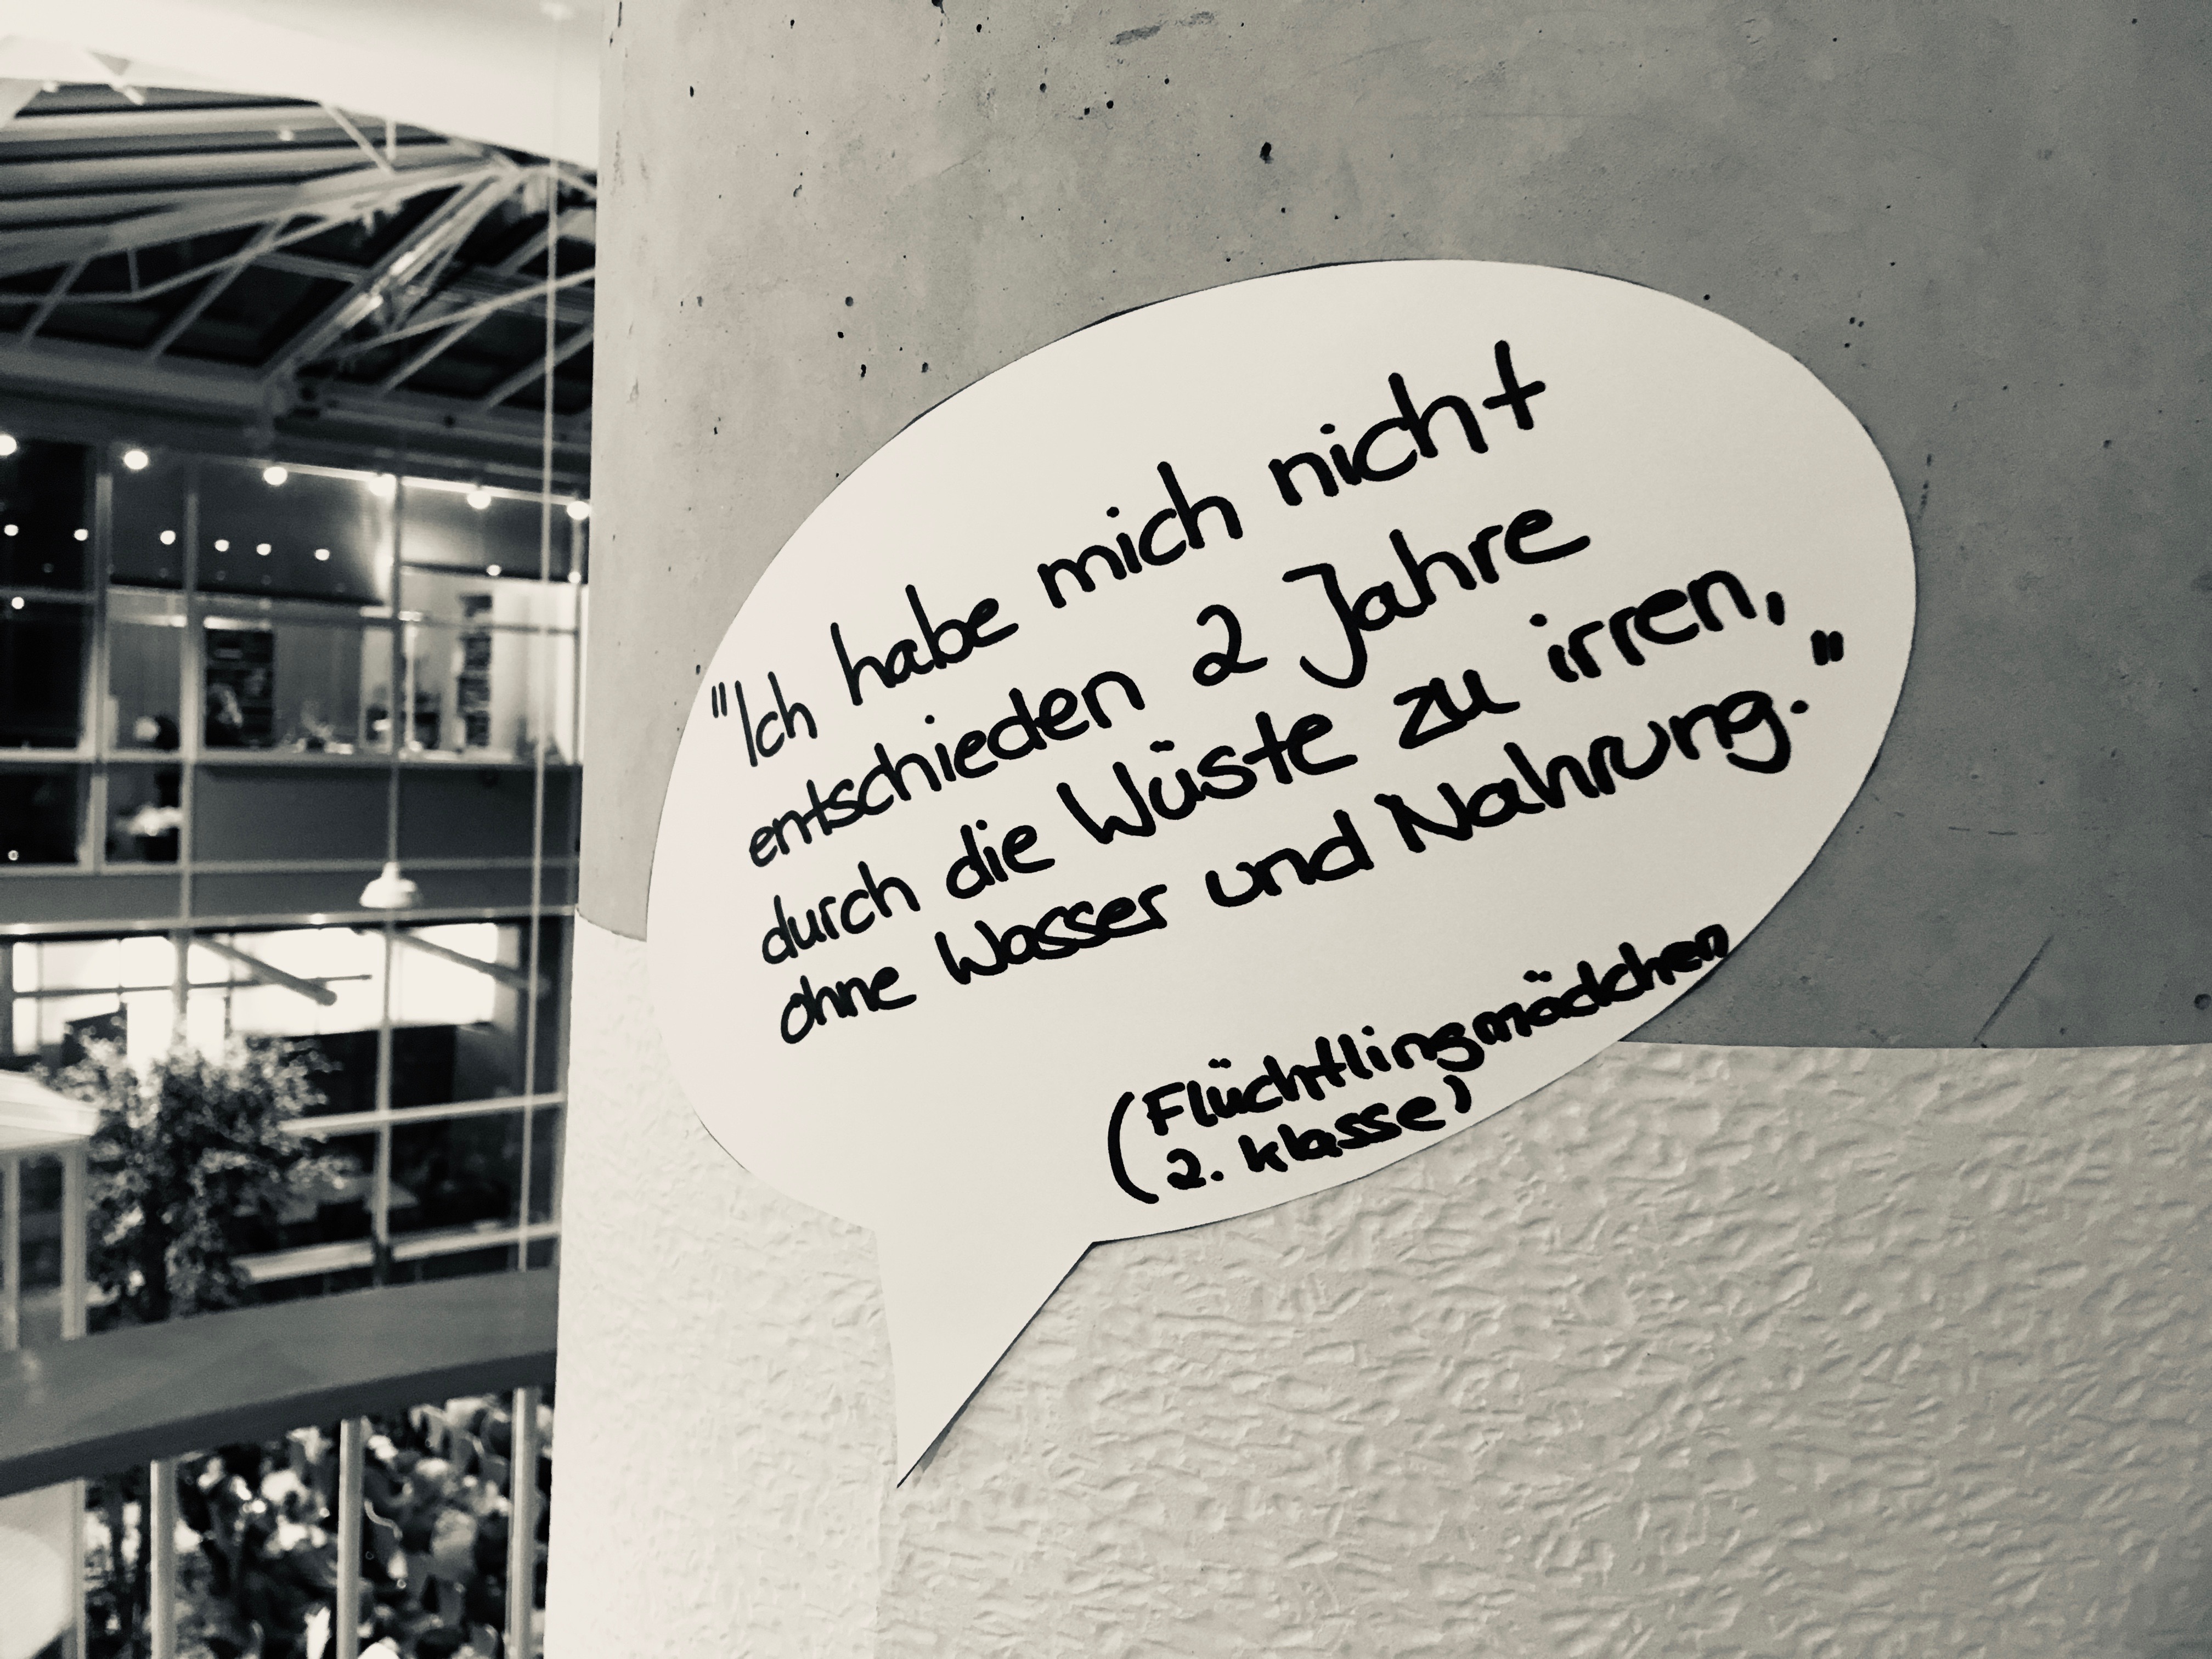 "Ich habe mich nicht
entschieden 2 Jahre
durch die Wüste zu irren,
ohne Wasser und Nahrung."
(Flüchtlingmädchen
2. klasse)